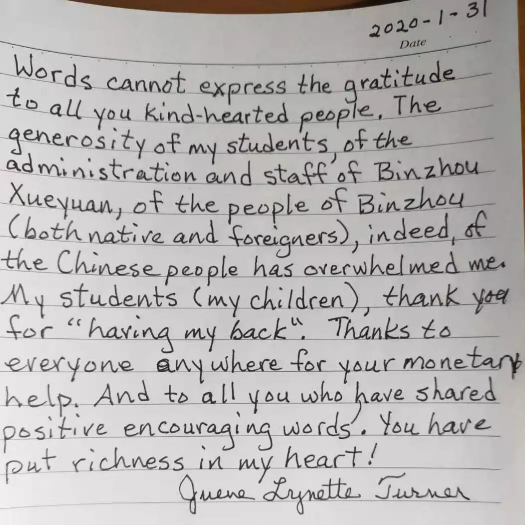 2020-1-31
Date
Words cannot express the gratitude
to all you kind-hearted people. The
generosity of my students, of the
administration and staff of Binzhou
Xueyuan, of the people of Binzhou
(both native and foreigners), indeed, of
the Chinese people has overwhelmed me.
My students (my children), thank you
for "having my back". Thanks to
everyone anywhere for your monetary
help. And to all you who have shared
positive encouraging words. You have
put richness in my heart!
Lynette Turner